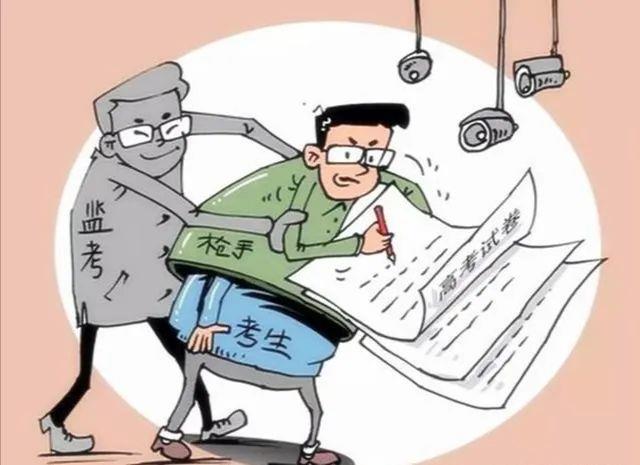 监考
枪手
考生
高考试卷